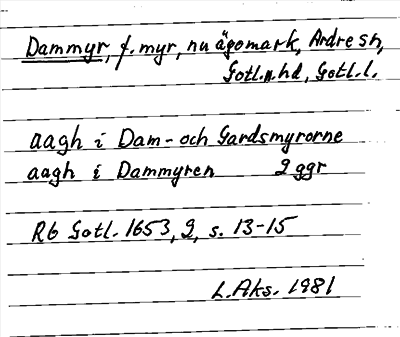 Dammyr, f. myr, nu ägomark, Ardre sn,
Gotl.n.hd, Gotl.l.
aagh i Dam- och Gardsmyrorne
aagh i Dammyren 2 ggr
Rb Gotl. 1653, 2, s. 13-15
L.Aks. 1981